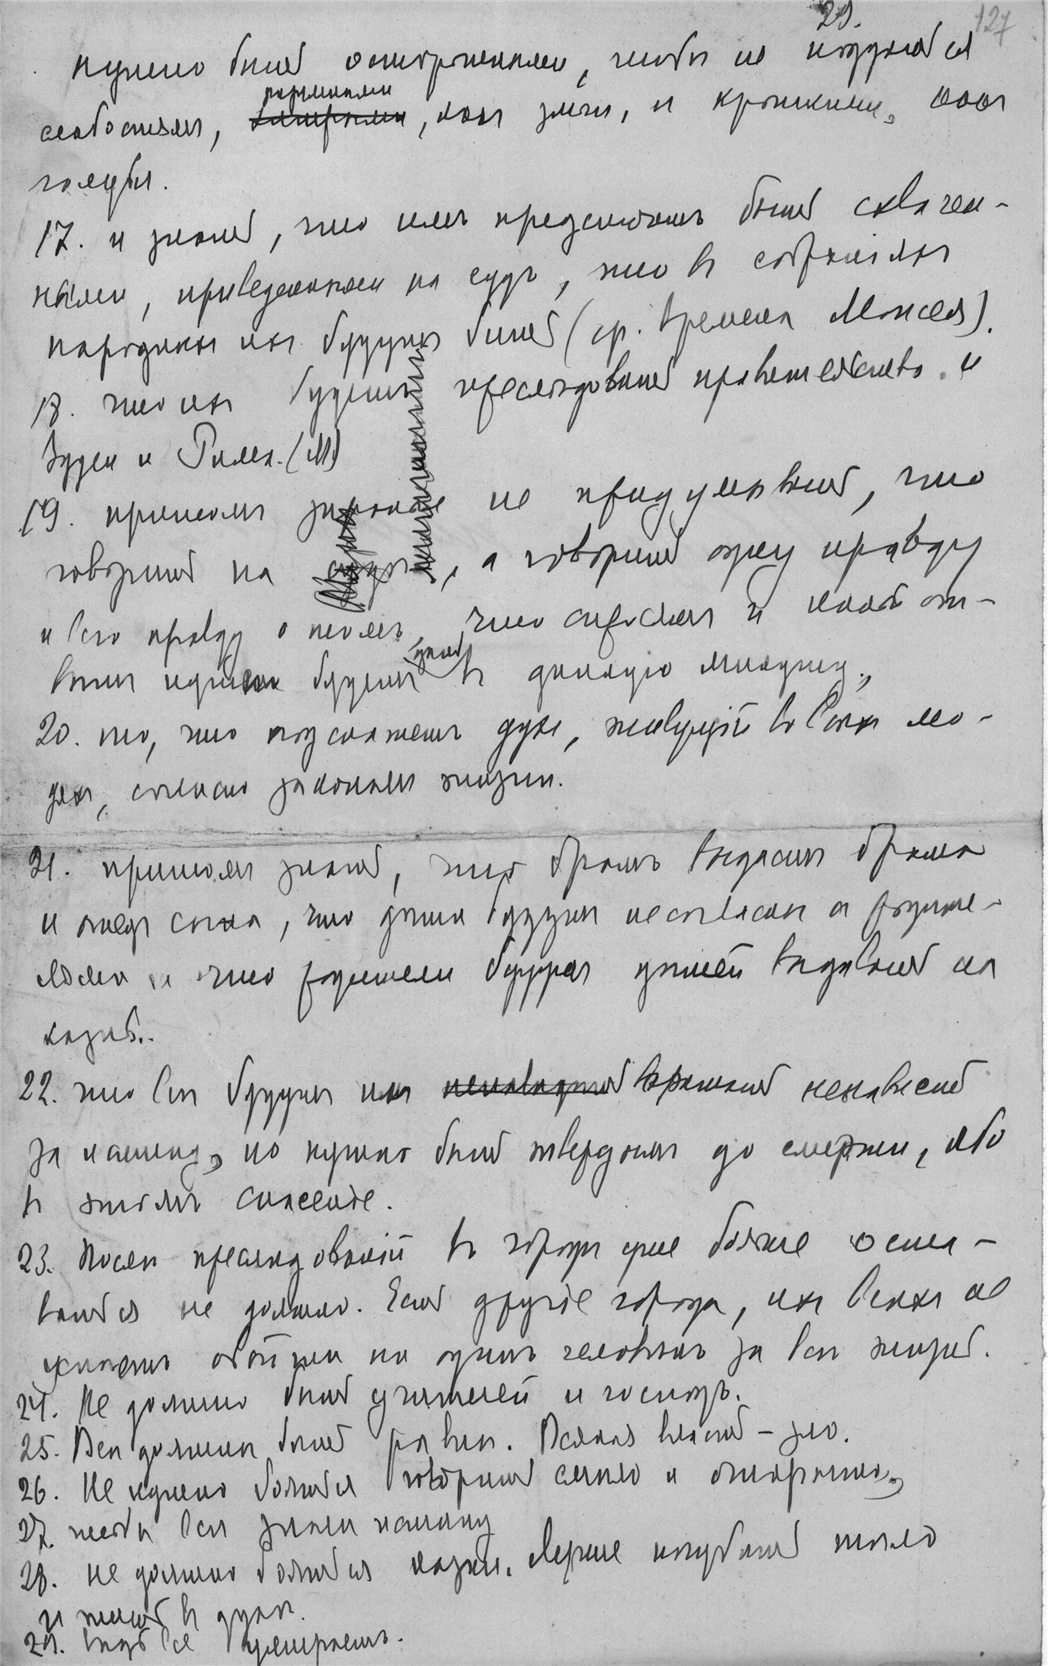 29.
127
нужно быть осторожными, чтобы не поддаться
разумными
слабостям, хитрыми, как змеи, и кроткими, как
голуби.
17. и знать, что имъ предстоитъ быть схвачен-
ными, приведенными на судъ, что въ собранiяхъ
народныхъ ихъ будутъ бить (ср. времена Моисея).
18. что ихъ будетъ преслѣдовать правительство и
Iудеи и Рима. (М)
19. притомъ заранѣе не придумывать, что
говорить на судѣ, а говорить одну правду
и всю правду о томъ, что спросятъ и какой от-
вѣтъ нуженъ будетъ данъ въ данную минуту,
20. то, что подскажетъ духъ, живущiй во всѣхъ лю-
дяхъ, согласно законамъ жизни.
21. притомъ знать, что братъ выдастъ брата
и отецъ сына, что дѣти будутъ несогласны съ родите-
лями и что родители будутъ дѣтей выдавать на
казнь.
22. что всѣ будутъ ихъ ненавидѣть ненависть
за истину, но нужно быть твердымъ до смерти, ибо
въ этомъ спасенiе.
23. Послѣ преслѣдованiй въ городѣ уже больше оста-
ваться не должно. Есть другiе города, ихъ всѣхъ не
успѣетъ обойти ни одинъ человѣкъ за всю жизнь.
24. Не должно быть учителей и господъ.
25. Всѣ должны быть равны. Всякая власть – зло.
26. Не нужно бояться говорить смѣло и открыто,
27. чтобы всѣ знали истину
28. не должно бояться казни. Лучше погубить тѣло
и жить въ духѣ.
29. вѣдь все умираетъ.